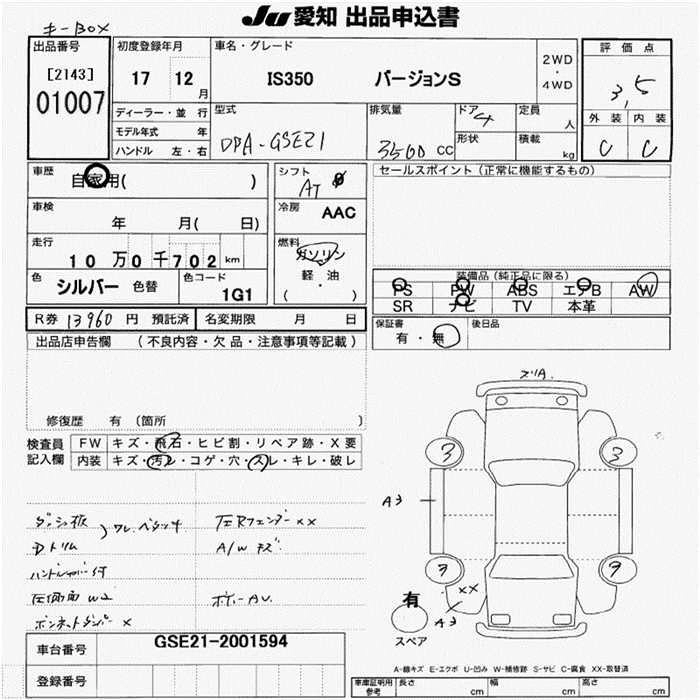 JU 愛知 出品申込書
キーBOX
出品番号
[2143]
01007
初度登録年月
17 12 月
車名・グレード
IS350 バージョンS
2WD
・
4WD
評価点
3,5
外装 内装
C C
ディーラー・並行
モデル年式 年
ハンドル 左・右
型式
DPA-GSE21
排気量
3500 CC
ドア 4
形状
定員 人
積載 kg
車歴
自家用( )
車検
年 月( 日)
走行
10 万 0 千 702 km
色
シルバー 色替
色コード
1G1
シフト
AT
冷房
AAC
燃料
ガソリン
軽・油
( )
セールスポイント(正常に機能するもの)
装備品(純正品に限る)
PS PW ABS エアB AW
SR ナビ TV 本革
保証書
有・無
後日品
R券 13960 円 預託済 名変期限 月 日
出品店申告欄 (不良内容・欠品・注意事項等記載)
修復歴 有 (箇所 )
検査員
記入欄
FW キズ・飛石・ヒビ割・リペア跡・X要
内装 キズ・汚レ・コゲ・穴・スレ・キレ・破レ
ダッシュ板
Dトリム
)ワレ、ベタツキ
左Rフェンダー××
A/W キズ
ハンドルカバー付
左側面 W2
ボデーAU.
ボンネットダンパー ×
車台番号 GSE21-2001594
登録番号
スリA.
3 3
A3
9
×× A3
有
スペア
A-線キズ E-エクボ U-凹み W-補修跡 S-サビ C-腐食 XX-取替済
車庫証明用
参考
長さ cm
幅 cm
高さ cm